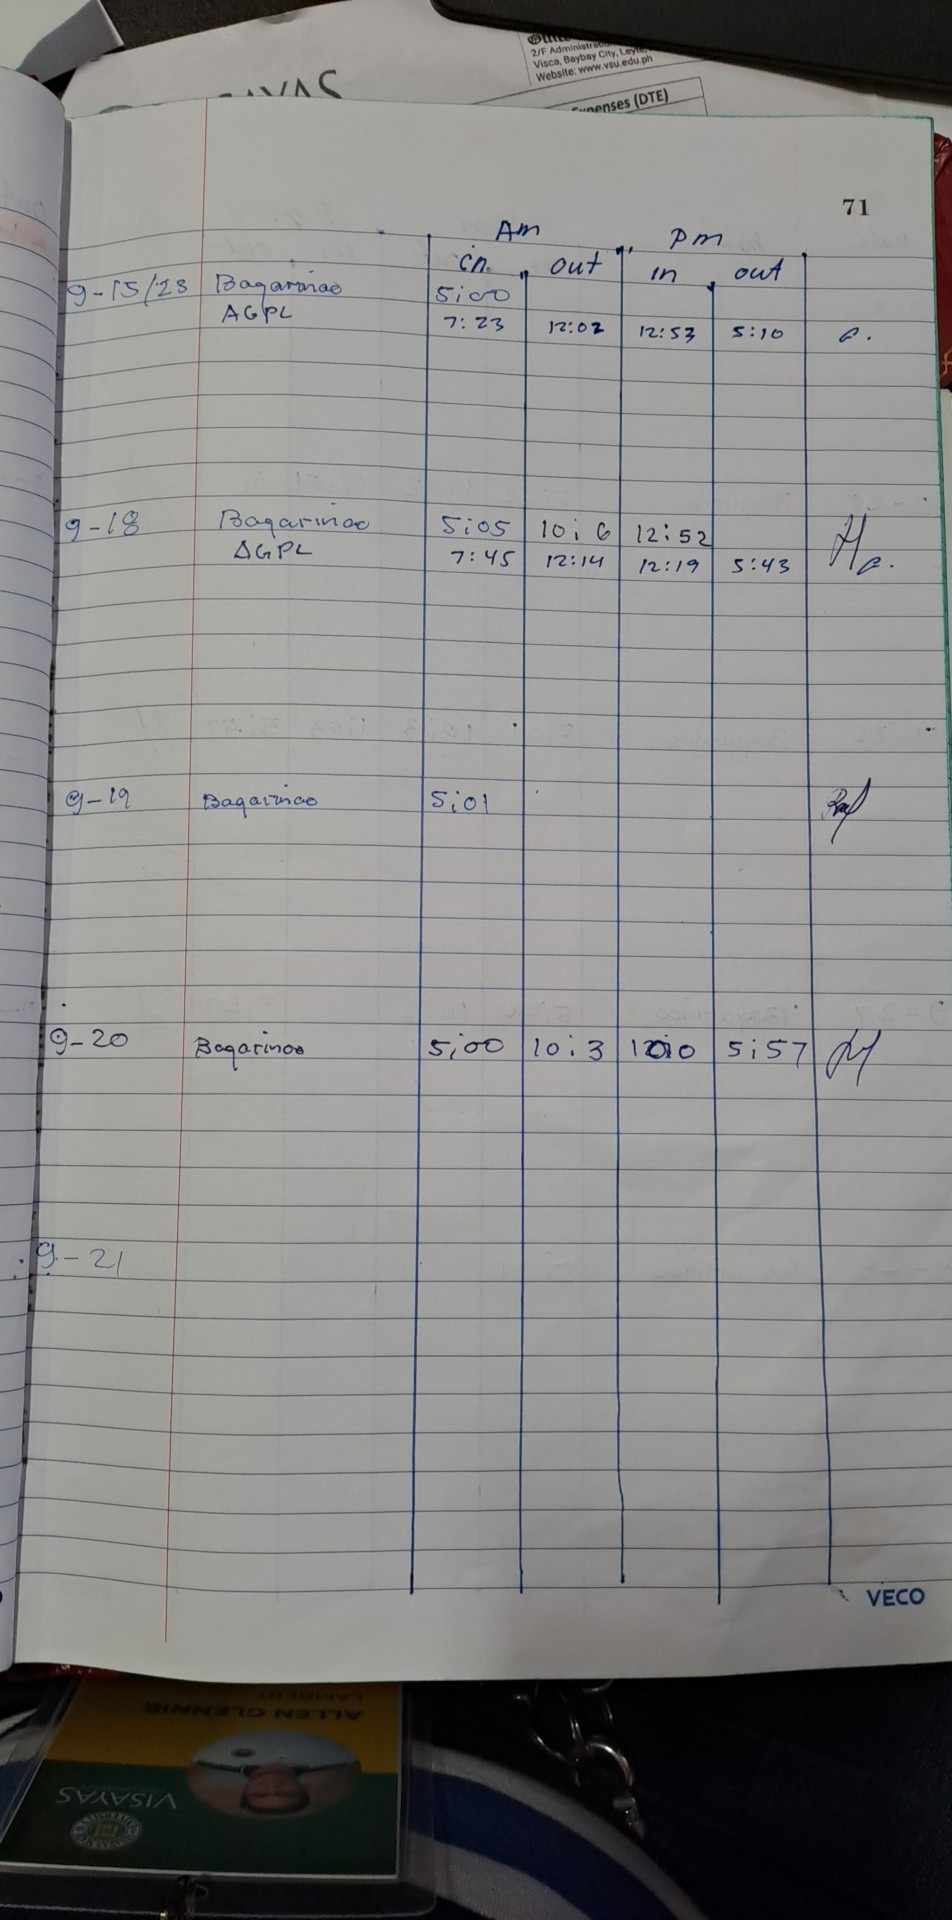 2/F Administra
Visca, Baybay City, Leyte,
Website: www.vsu.edu.ph
VISAYAS
Expenses (DTE)
71
Am Pm
in out in out
9-15/23 Bagarinao 5:00
AGPL 7:23 12:02 12:53 5:10
9-18 Bagarinao 5:05 10:6 12:52
AGPL 7:45 12:14 12:19 5:43
9-19 Bagarinao 5:01
9-20 Bagarinao 5:00 10:3 5:57
9-21
VECO
LAMBERT
ALLEN GLENNIE
VISAYAS